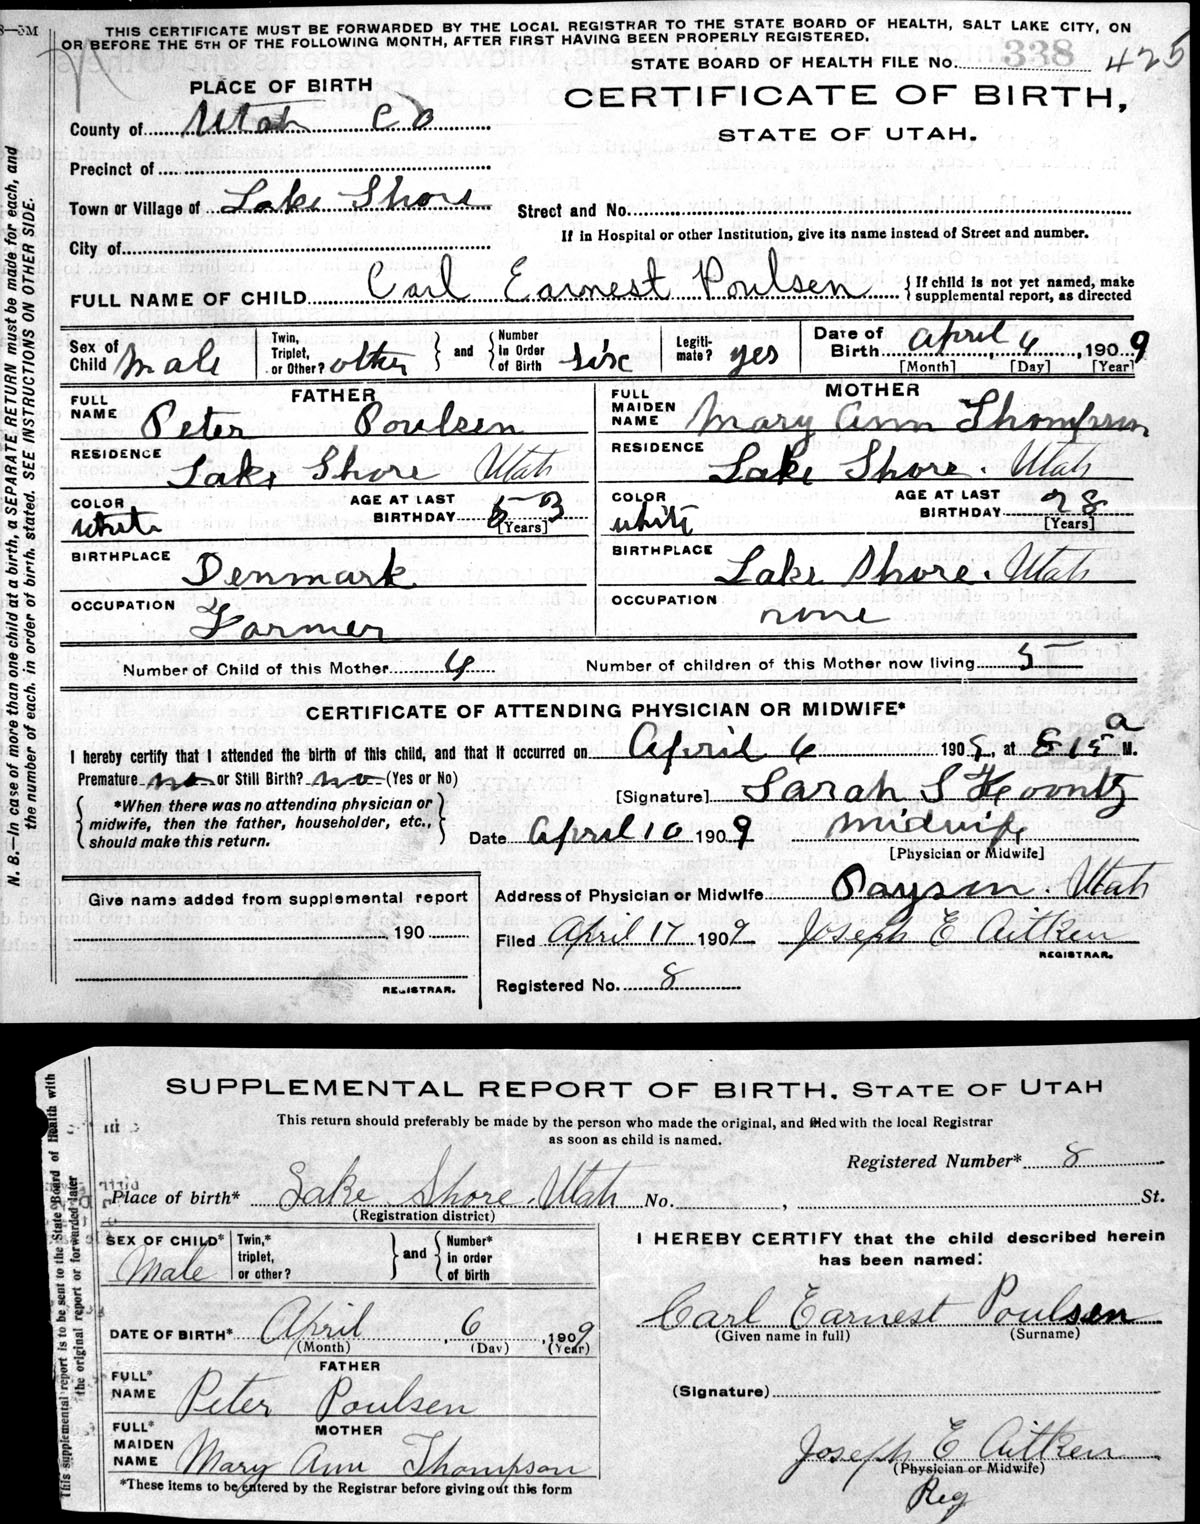 8—3M
THIS CERTIFICATE MUST BE FORWARDED BY THE LOCAL REGISTRAR TO THE STATE BOARD OF HEALTH, SALT LAKE CITY, ON
OR BEFORE THE 5TH OF THE FOLLOWING MONTH, AFTER FIRST HAVING BEEN PROPERLY REGISTERED.
STATE BOARD OF HEALTH FILE No. 338 425
PLACE OF BIRTH
CERTIFICATE OF BIRTH,
STATE OF UTAH.
County of Utah Co
Precinct of
Town or Village of Lake Shore
Street and No.
City of
If in Hospital or other Institution, give its name instead of Street and number.
FULL NAME OF CHILD Carl Earnest Poulsen {If child is not yet named, make supplemental report, as directed
Sex of Child Male Twin, Triplet, or Other? other } and { Number in Order of Birth six Legiti-mate? yes Date of Birth April 6, 1909
[Month] [Day] [Year]
FATHER MOTHER
FULL NAME Peter Poulsen FULL MAIDEN NAME Mary Ann Thompson
RESIDENCE Lake Shore Utah RESIDENCE Lake Shore. Utah
COLOR white AGE AT LAST BIRTHDAY 53 [Years] COLOR white AGE AT LAST BIRTHDAY 28 [Years]
BIRTHPLACE Denmark BIRTHPLACE Lake Shore. Utah
OCCUPATION Farmer OCCUPATION none
Number of Child of this Mother 6 Number of children of this Mother now living 5
CERTIFICATE OF ATTENDING PHYSICIAN OR MIDWIFE*
I hereby certify that I attended the birth of this child, and that it occurred on April 6 1909, at 8 15 a M.
Premature no or Still Birth? no (Yes or No)
{*When there was no attending physician or midwife, then the father, householder, etc., should make this return.}
[Signature] Sarah S Koontz
Date April 10 1909 Midwife
[Physician or Midwife]
Give name added from supplemental report
190
REGISTRAR.
Address of Physician or Midwife Payson. Utah
Filed April 17 1909 Joseph E Aitken
REGISTRAR.
Registered No. 8
N. B.—In case of more than one child at a birth, a SEPARATE RETURN must be made for each, and
the number of each, in order of birth, stated. SEE INSTRUCTIONS ON OTHER SIDE.
SUPPLEMENTAL REPORT OF BIRTH, STATE OF UTAH
This return should preferably be made by the person who made the original, and filed with the local Registrar
as soon as child is named.
Registered Number* 8
Place of birth* Lake Shore. Utah No. , St.
(Registration district)
SEX OF CHILD* Male Twin,* triplet, or other? } and { Number* in order of birth
DATE OF BIRTH* April 6, 1909
(Month) (Day) (Year)
FATHER
FULL* NAME Peter Poulsen
MOTHER
FULL* MAIDEN NAME Mary Ann Thompson
*These items to be entered by the Registrar before giving out this form
I HEREBY CERTIFY that the child described herein
has been named:
Carl Earnest Poulsen
(Given name in full) (Surname)
(Signature)
Joseph E Aitken
(Physician or Midwife)
Reg
This supplemental report is to be sent to the State Board of Health with
the original report or forwarded later